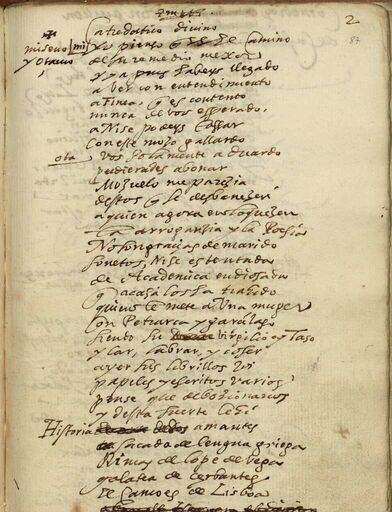 2
87
Catredatico divino
miseno mi/ Yo pienso q es el camino
y otavio
de su remedio mexor
y ya pues habeys llegado
a ver con entendimiento
a Finea, q es contento
nunca de vos esperado,
a Nise podeys cassar
con este mozo gallardo
ota Vos solamente a Duardo
pudierades abonar
Mozuelo me parezia
destos q se desbanezen
a quien agora enloquezen
la arroganzia y la Poesia
No son gracias de marido
sonetos, Nise es tentada
de Academica endiosada
q a casa los ha traido
quien le mete a Una muger
con Petrarca y garzilaso
siendo su Virgilio y Taso
ylar, labrar, y coser
ayer sus librillos vi
papeles y escritos varios
pense que debozionarios
y desta suerte lehi
Historia de dos amantes
sacada de lengua griega
Rimas de lope de vega
galatea de cerbantes
el Camoes de Lisboa